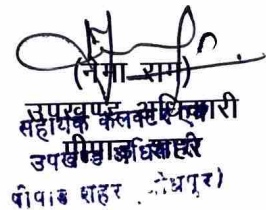 (नेमा राम)
उपखण्ड अधिकारी
सहायक कलक्टर एवं
पीपाड़ शहर
उपखण्ड अधिकारी
पीपाड शहर (जोधपुर)